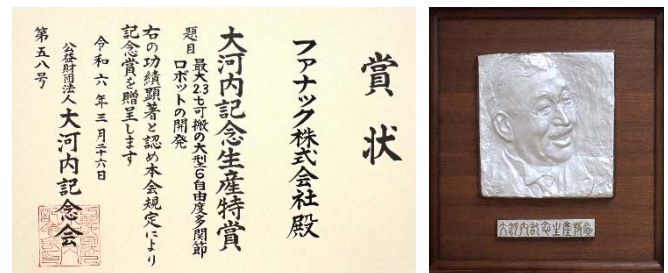 賞状
ファナック株式会社殿
大河内記念生産特賞
題目 最大2.3t可搬の大型6自由度多関節
ロボットの開発
右の功績顕著と認め本会規定により
記念賞を贈呈します
令和六年三月二十六日
公益財団法人 大河内記念会
第五八号
大河内記念生産特賞